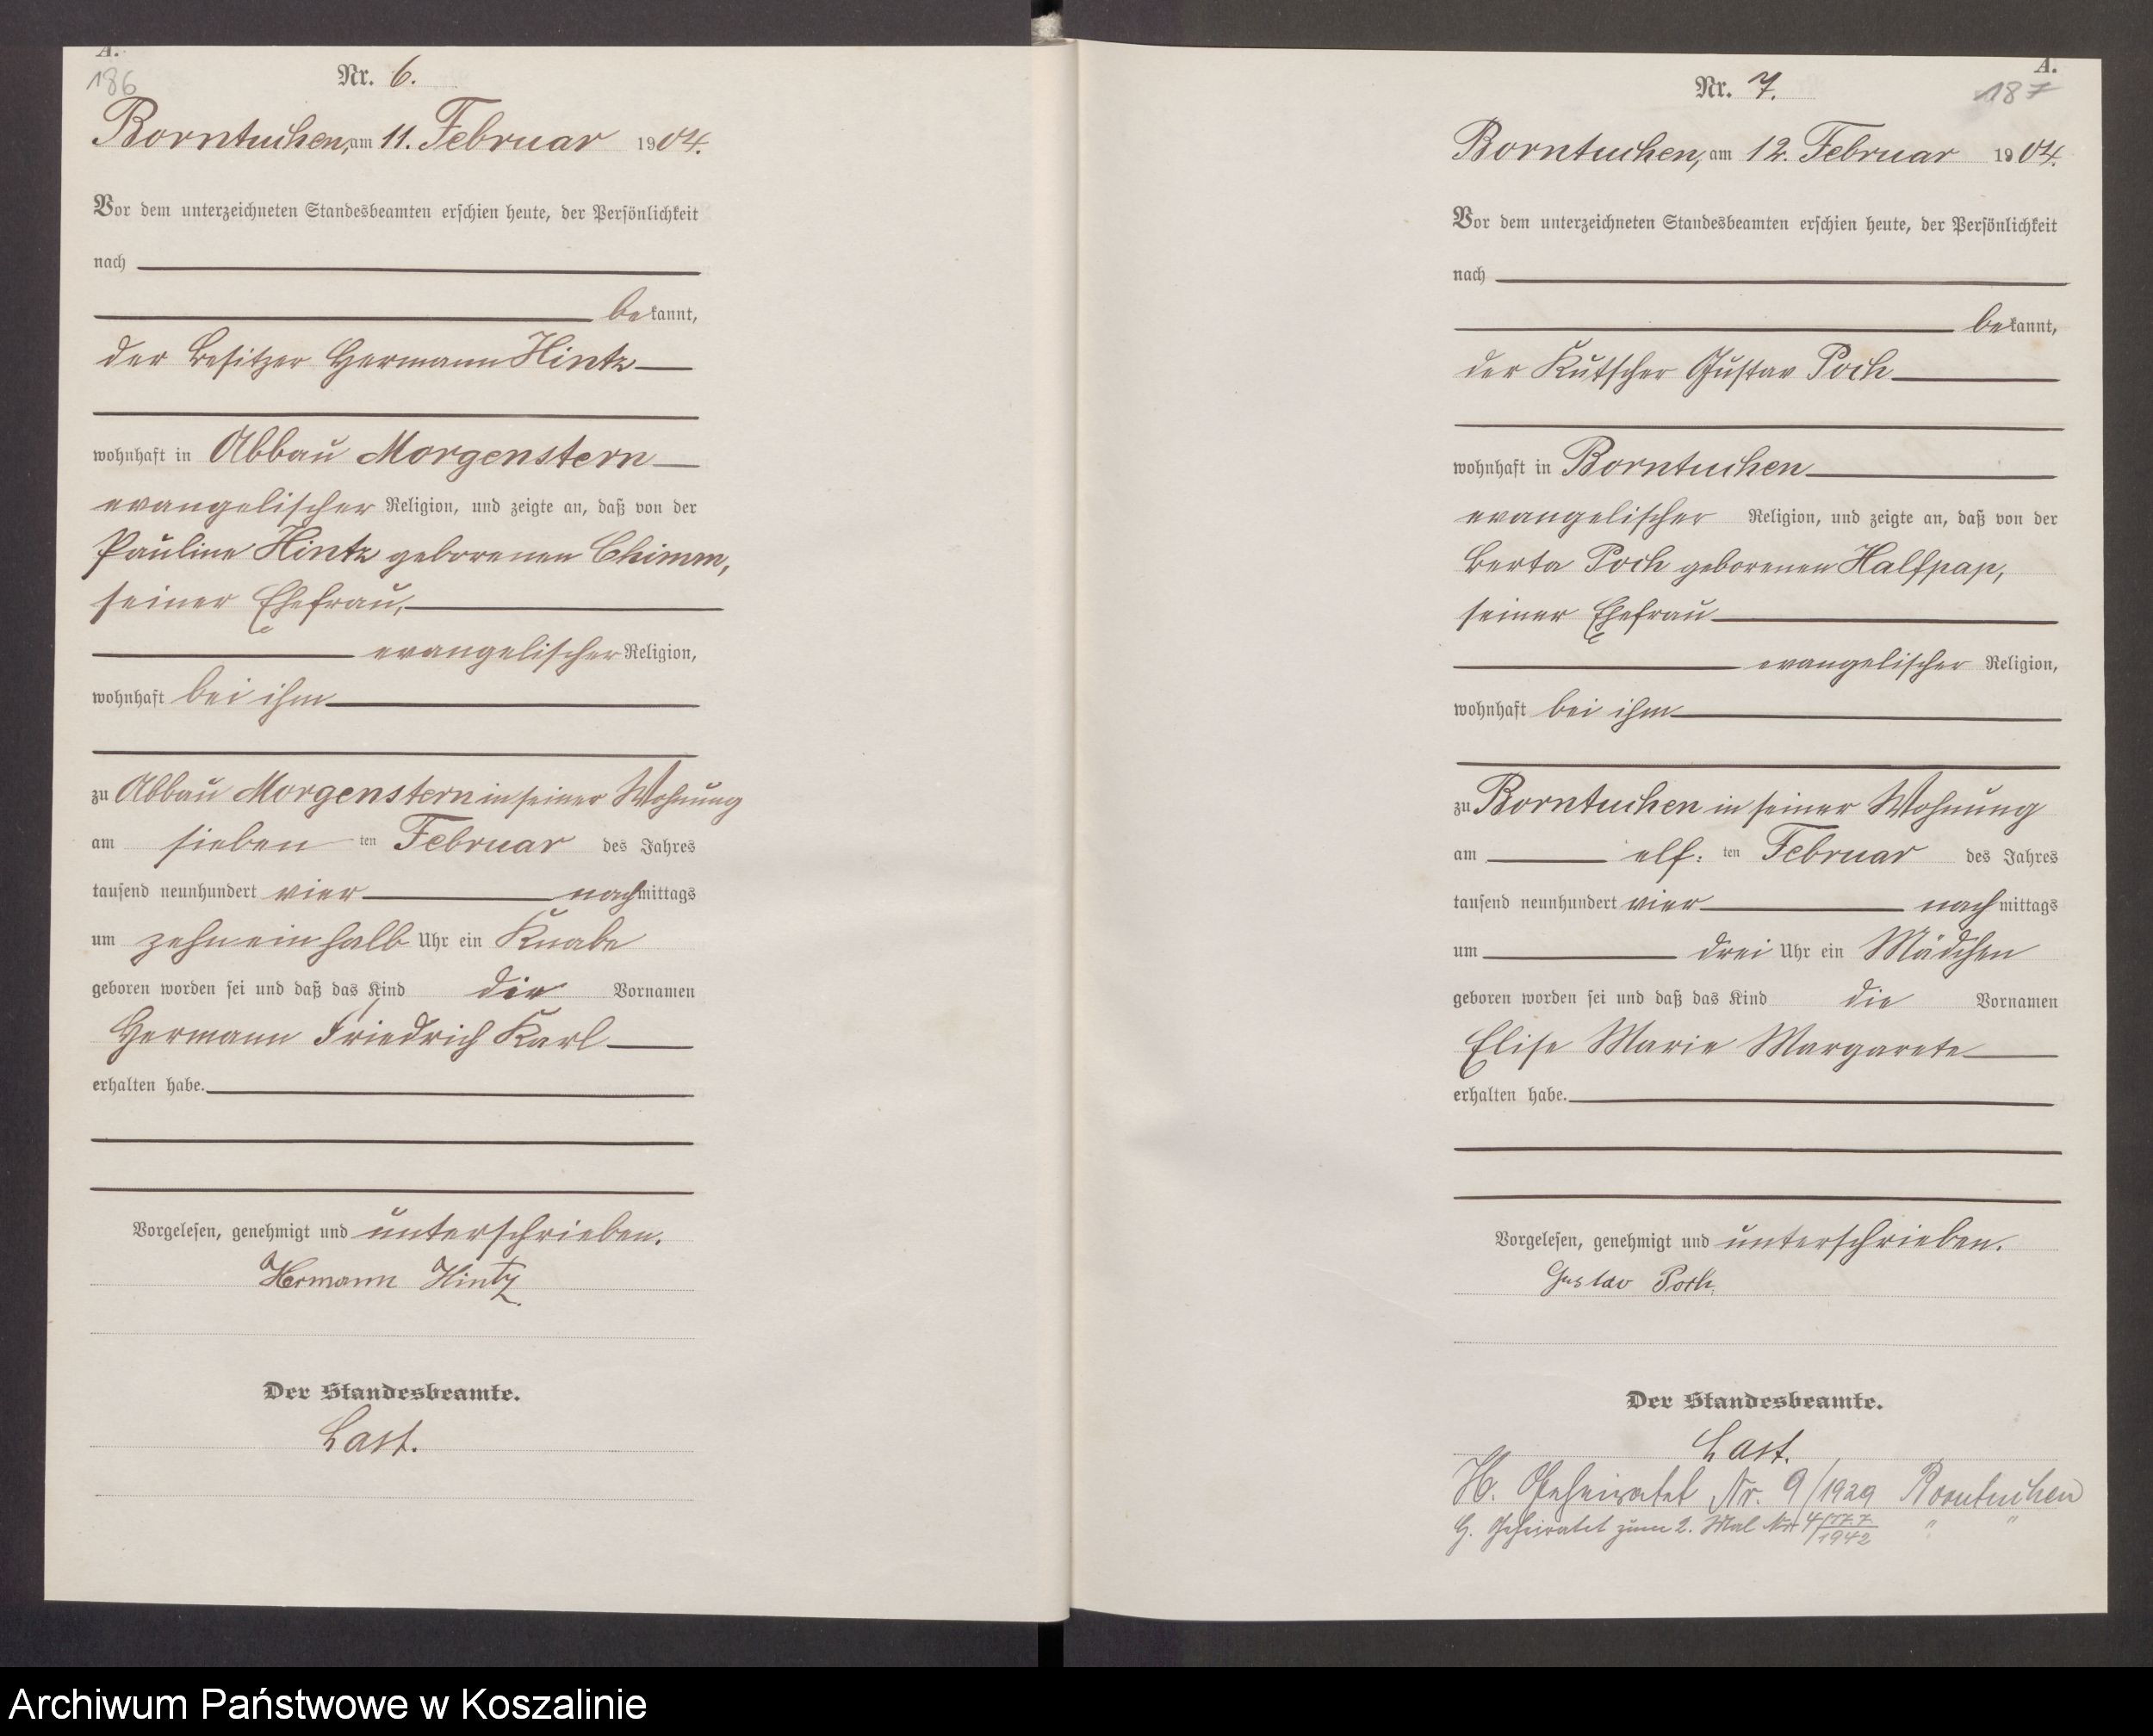 A.
186
Nr. 6.
Borntuchen, am 11. Februar 1904.
Vor dem unterzeichneten Standesbeamten erschien heute, der Persönlichkeit
nach
bekannt,
der Besitzer Hermann Hintz
wohnhaft in Abbau Morgenstern
evangelischer Religion, und zeigte an, daß von der
Pauline Hintz geborenen Chimm,
seiner Ehefrau,
evangelischer Religion,
wohnhaft bei ihm
zu Abbau Morgenstern in seiner Wohnung
am sieben ten Februar des Jahres
tausend neunhundert vier nachmittags
um zehn ein halb Uhr ein Knabe
geboren worden sei und daß das Kind die Vornamen
Hermann Friedrich Karl
erhalten habe.
Vorgelesen, genehmigt und unterschrieben.
Hermann Hintz
Der Standesbeamte.
Last.
A.
187
Nr. 7.
Borntuchen, am 12. Februar 1904.
Vor dem unterzeichneten Standesbeamten erschien heute, der Persönlichkeit
nach
bekannt,
der Kutscher Gustav Poch
wohnhaft in Borntuchen
evangelischer Religion, und zeigte an, daß von der
Berta Poch geborenen Halfpap,
seiner Ehefrau
evangelischer Religion,
wohnhaft bei ihm
zu Borntuchen in seiner Wohnung
am elf: ten Februar des Jahres
tausend neunhundert vier nachmittags
um drei Uhr ein Mädchen
geboren worden sei und daß das Kind die Vornamen
Elise Marie Margarete
erhalten habe.
Vorgelesen, genehmigt und unterschrieben.
Gustav Poch.
Der Standesbeamte.
Last.
H. Geheiratet Nr. 9/1929 Borntuchen
G. Geheiratet zum 2. Mal Nr 4/1942 " "
Archiwum Państwowe w Koszalinie